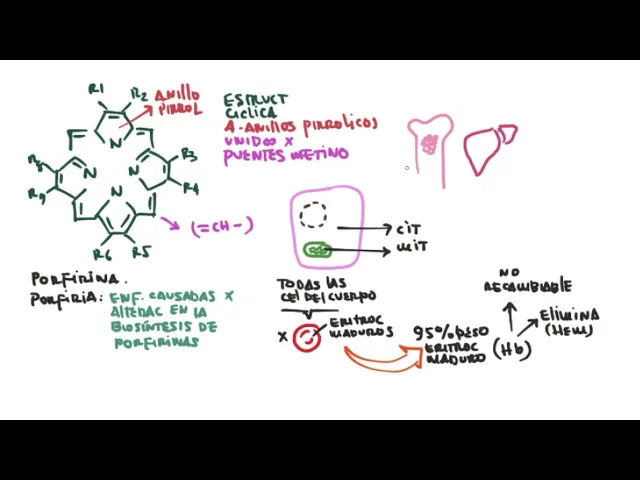 R1
R2
ANILLO
PIRROL
N
R3
R4
N
N
R8
N
R6 R5
ESTRUCT
CICLICA
4-ANILLOS PIRROLICOS
UNIDOS X
PUENTES METINO
(=CH-)
PORFIRINA.
PORFIRIA: ENF. CAUSADAS X
ALTERAC EN LA
BIOSÍNTESIS DE
PORFIRINAS
CIT
MIT
TODAS LAS
CEL DEL CUERPO
X
ERITROC
MADUROS
95% PESO
ERITROC
MADURO
(Hb)
NO
RECAMBIABLE
ELIMINA
(HEM)